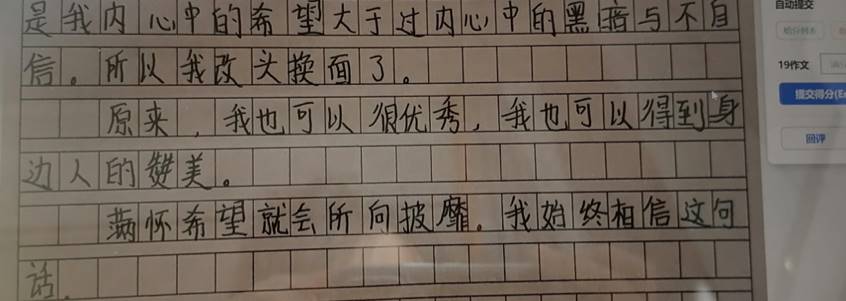 是我内心中的希望大于过内心中的黑暗与不自
信。所以我改头换面了。
原来，我也可以很优秀，我也可以得到身
边人的赞美。
满怀希望就会所向披靡。我始终相信这句
话.
自动提交
19作文
提交得分(E
回评